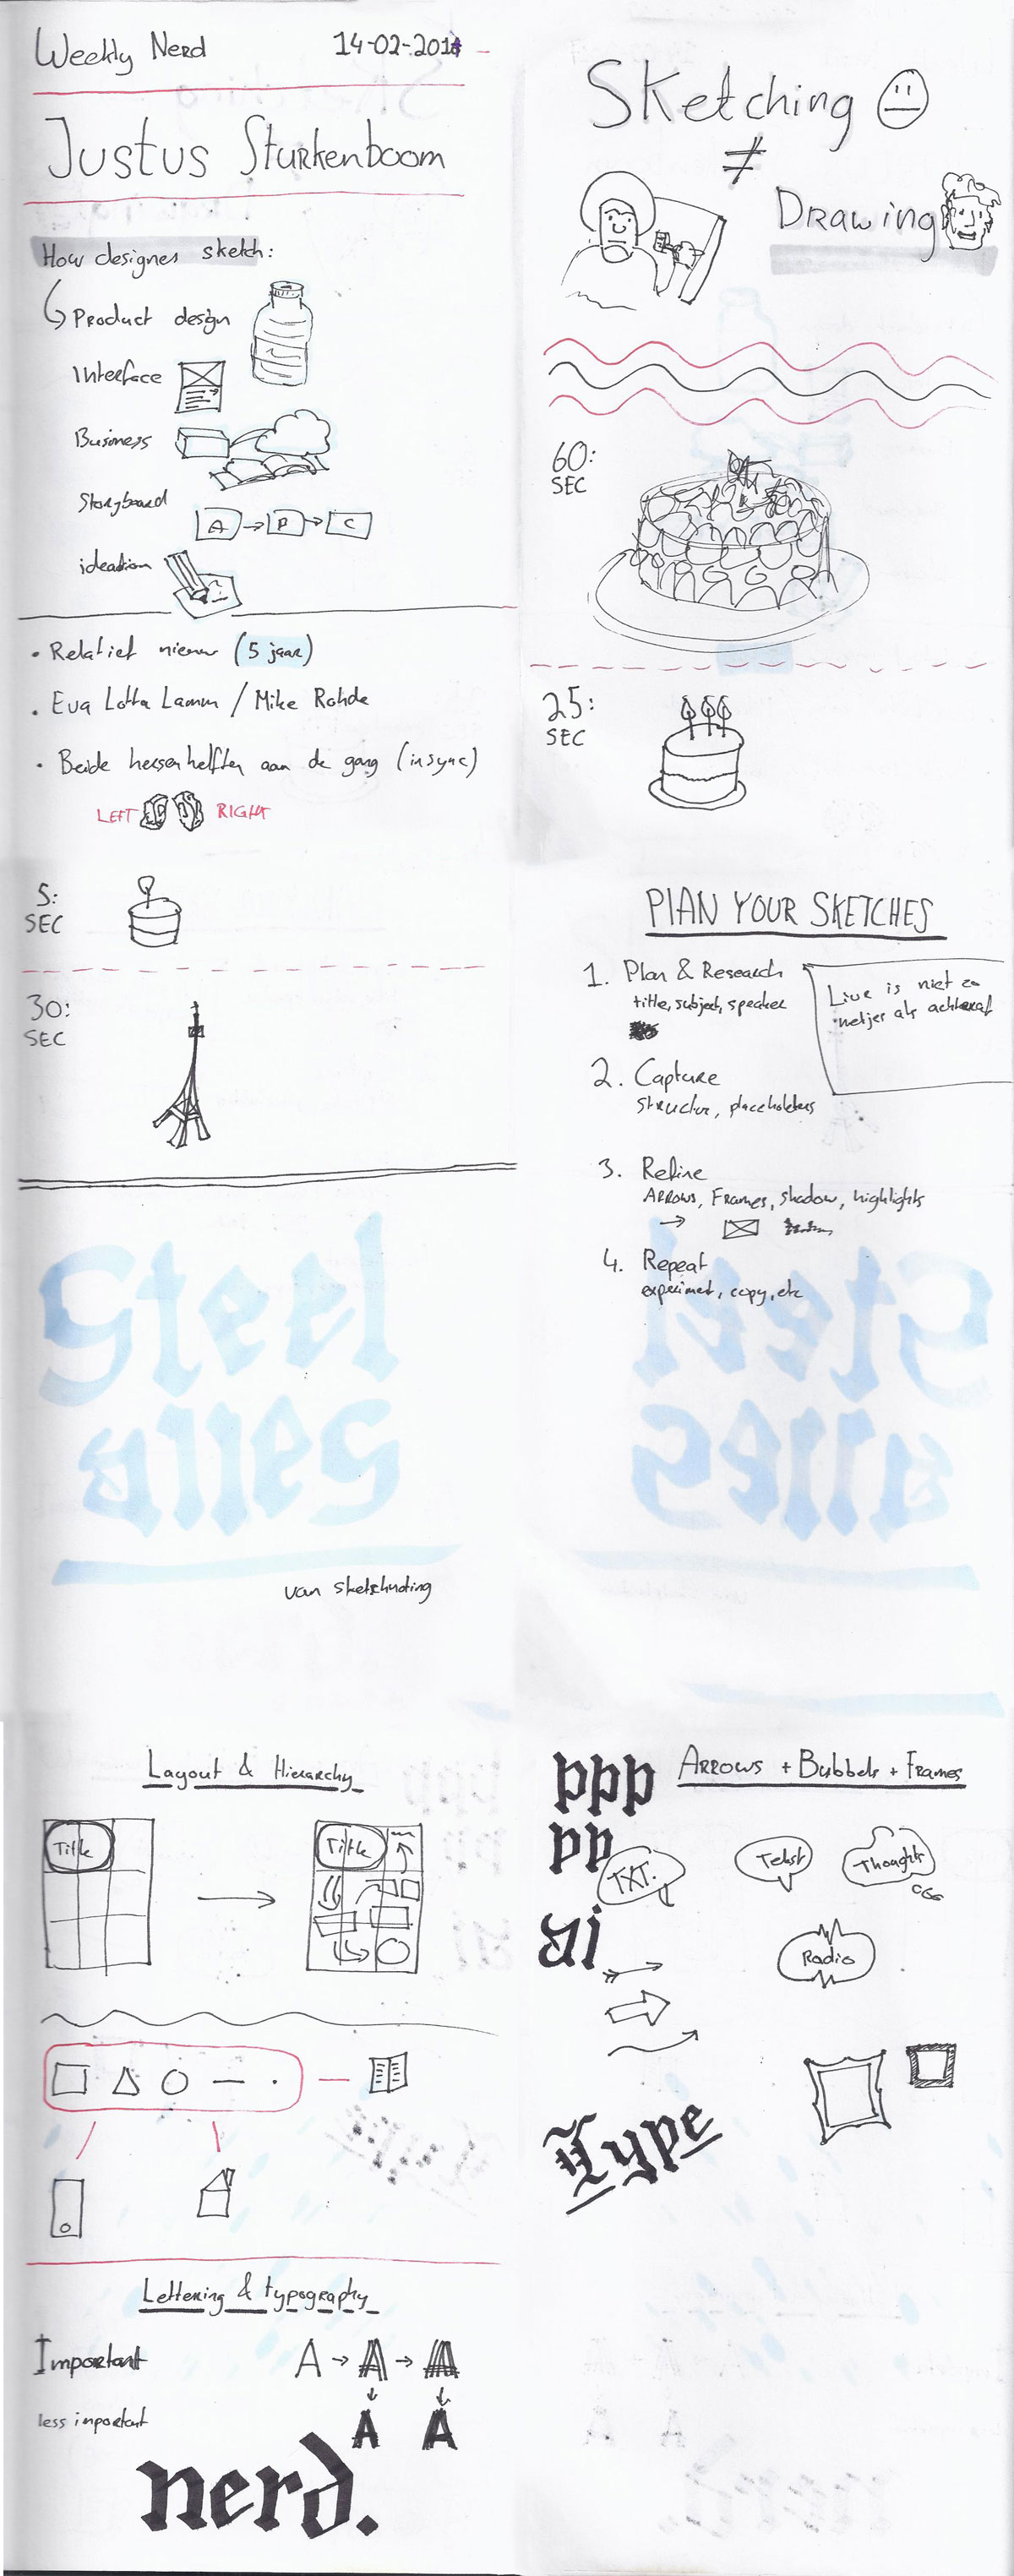 Weekly Nerd
14-02-201
Justus Sturkenboom
How designer sketch:
Product design
Interface
Business
Storyboard
A → B → C
ideation
• Relatief nieuw (5 jaar)
• Eva Lotta Lamm / Mike Rohde
• Beide hersenhelften aan de gang (in sync)
LEFT RIGHT
Sketching
≠
Drawing
60:
SEC
25:
SEC
5:
SEC
30:
SEC
Steel
alles
van sketchnoting
PLAN YOUR SKETCHES
1. Plan & Research
title, subject, speaker
Live is niet zo
netjes als achteraf
2. Capture
structur, placeholders
3. Refine
Arrows, Frames, shadow, highlights
4. Repeat
experiment, copy, etc
Layout & Hierarchy
Title → Title
Lettering & typography
Important
A → A → A
less important
A A
nerd.
ppp
pp
ai
Arrows + Bubbels + Frames
TXT.
Tekst
Thoughts
Radio
Type